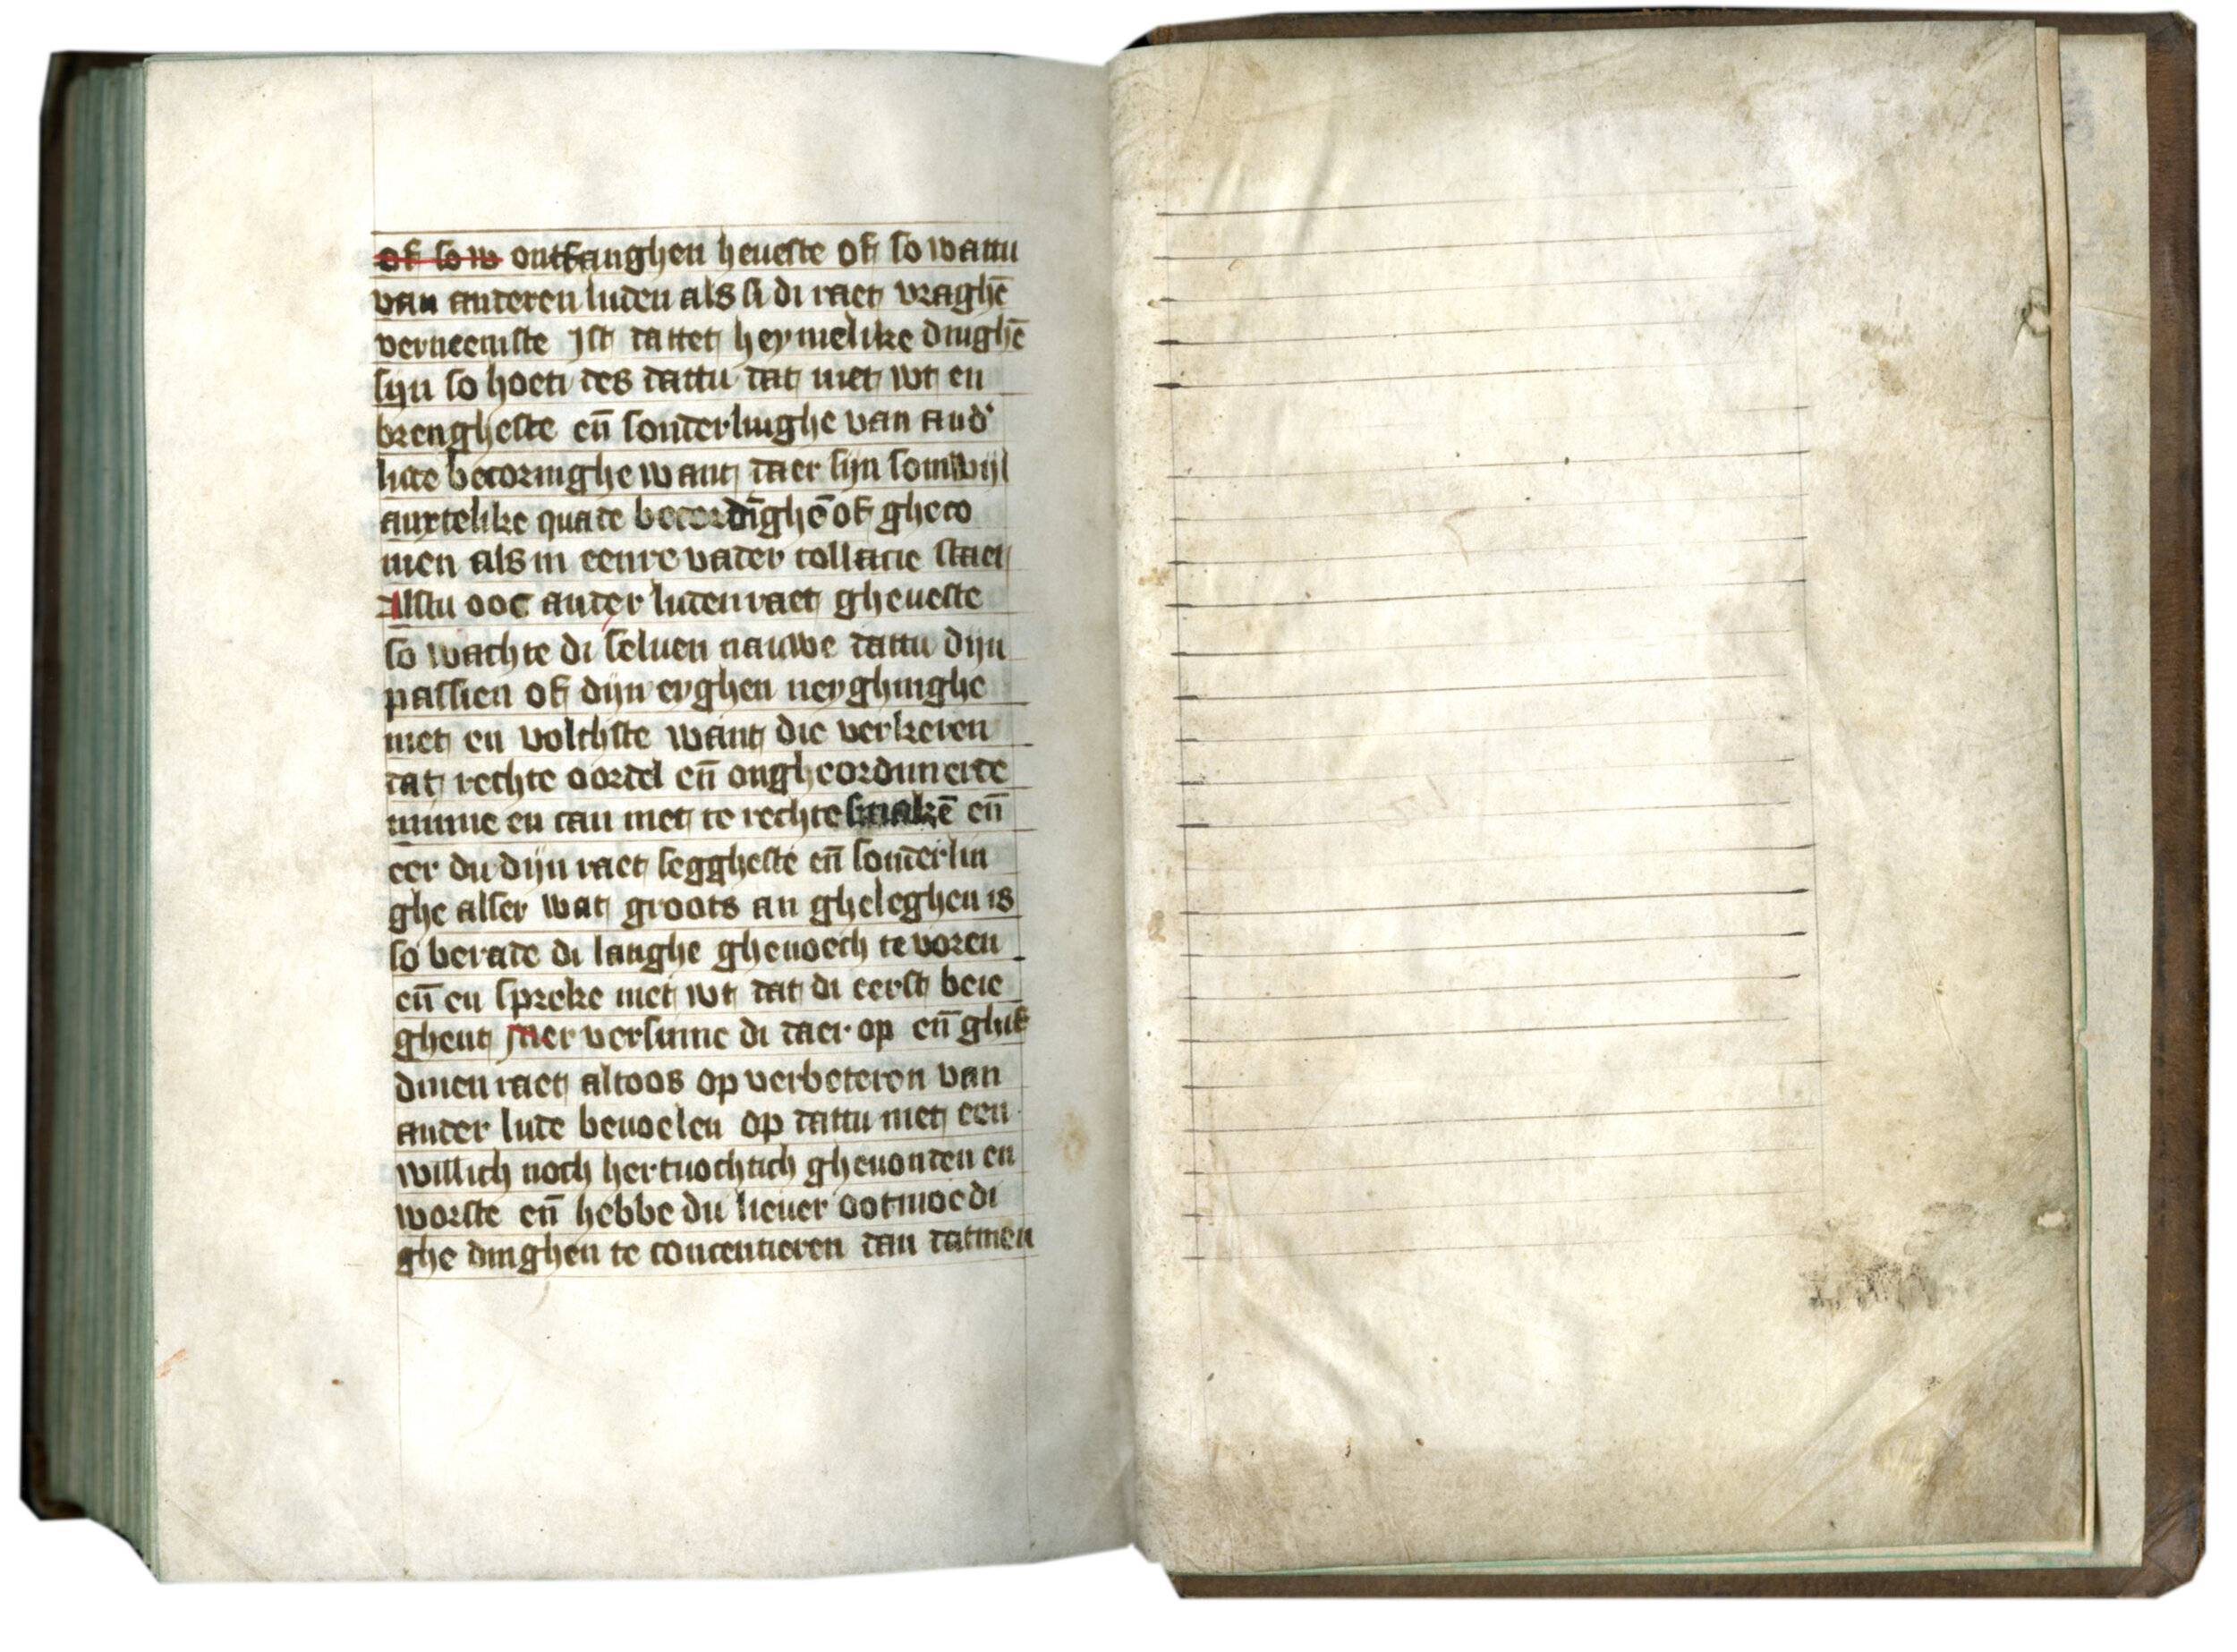 of so w ontfanghen heueste of so wattu
van anderen luden als si di raet vraghē
verneemste Ist dattet heymelike dinghē
sijn so hoet des dattu dat niet wt en
brengheste eñ sonderlinghe van and'
lude becoringhe want daer sijn somwijl
anxtelike quade becordīghē of gheco
men als in eenre vader collacie staet
Alstu ooc ander luden raet gheueste
so wachte di seluen nauwe dattu dijn
passien of dijn eyghen neyghinghe
niet en volchste want die verkeren
dat rechte oordel eñ ongheordineerde
minne en can niet te rechte smakē eñ
eer du dijn raet seggheste eñ sonderlin
ghe alser wat groots an gheleghen is
so berade di langhe ghenoech te voren
eñ en spreke niet wt dat di eerst beie
ghent mer versinne di daer op eñ ghif
dinen raet altoos op verbeteren van
ander lude beuoelen op dattu niet een
willich noch hertnochtich gheuonden en
worste eñ hebbe du lieuer ootmoedi
ghe dinghen te concentieren dan datmen